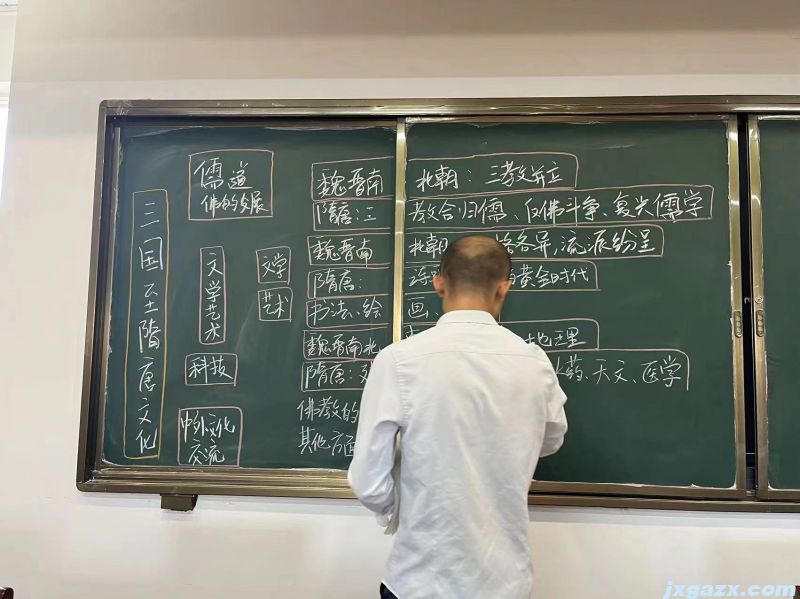 三国至隋唐文化
儒道
佛的发展
魏晋南北朝：三教并立
隋唐：三教合归儒、反佛斗争、复兴儒学
文学艺术
文学
魏晋南北朝
各异，流派纷呈
隋唐：
黄金时代
艺术
书法、绘画、
科技
魏晋南北
地理
隋唐：
火药、天文、医学
中外文化
交流
佛教的
其他方面
jxgazx.com